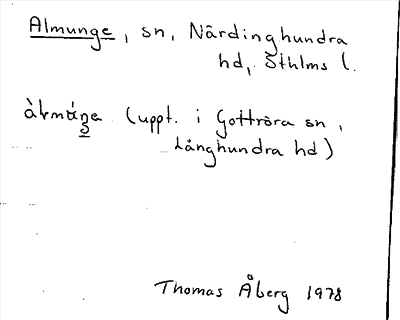 Almunge, sn, Närdinghundra
hd, Sthlms l.
(uppt. i Gottröra sn,
Långhundra hd)
Thomas Åberg 1978